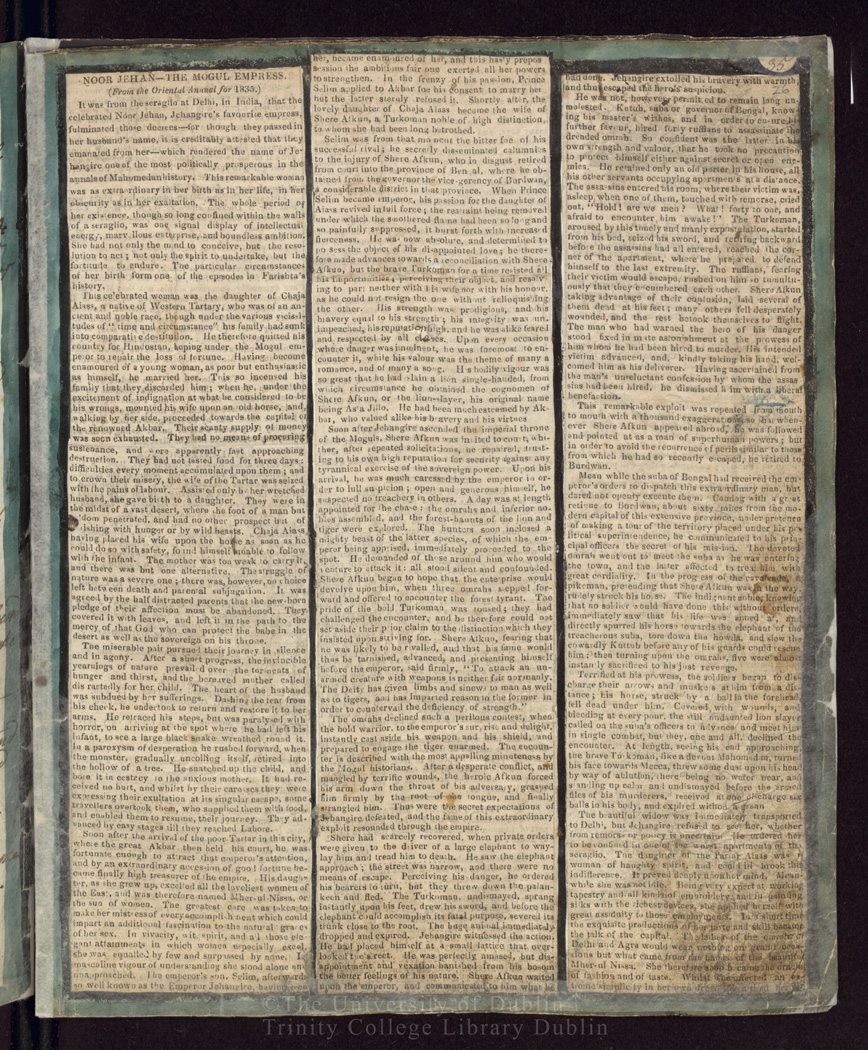 NOOR JEHAN—THE MOGUL EMPRESS.
(From the Oriental Annual for 1835.)
It was from the seraglio at Delhi, in India, that the
celebrated Noor Jehan, Jehangire's favourite empress,
fulminated those decrees—for though they passed in
her husband's name, it is creditably attested that they
emanated from her—which rendered the name of Je-
hangire one of the most politically prosperous in the
annals of Mahomedan history. This remarkable woman
was as extraordinary in her birth as in her life, in her
obscurity as in her exaltation. The whole period of
her existence, though so long confined within the walls
of a seraglio, was one signal display of intellectual
energy, marvellous enterprise, and boundless ambition.
She had not only the mind to conceive, but the reso-
lution to act; not only the spirit to undertake, but the
fortitude to endure. The particular circumstances
of her birth form one of the episodes in Farishta's
history.
This celebrated woman was the daughter of Chaja
Aiass, a native of Western Tartary, who was of an an-
cient and noble race, though under the various vicissi-
tudes of "time and circumstance" his family had sunk
into comparative destitution. He therefore quitted his
country for Hindostan, hoping under the Mogul em-
peror to repair the loss of fortune. Having become
enamoured of a young woman, as poor but enthusiastic
as himself, he married her. This so incensed his
family that they discarded him; when, under the
excitement of indignation at what he considered to be
his wrongs, he mounted his wife upon an old horse, and,
walking by her side, proceeded towards the capital of
the renowned Akbar. Their scanty supply of money
was soon exhausted. They had no means of procuring
sustenance, and were apparently fast approaching
destruction. They had not tasted food for three days:
difficulties every moment accumulated upon them; and
to crown their misery, the wife of the Tartar was seized
with the pains of labour. Assisted only by her wretched
husband, she gave birth to a daughter. They were in
the midst of a vast desert, where the foot of a man but
seldom penetrated, and had no other prospect but of
perishing with hunger or by wild beasts. Chaja Aiass,
having placed his wife upon the horse as soon as he
could do so with safety, found himself unable to follow
with the infant. The mother was too weak to carry it,
and there was but one alternative. The struggle of
nature was a severe one; there was, however, no choice
left between death and parental subjugation. It was
agreed by the half distracted parents that the new-born
pledge of their affection must be abandoned. They
covered it with leaves, and left it in the path to the
mercy of that God who can protect the babe in the
desert as well as the sovereign on his throne.
The miserable pair pursued their journey in silence
and in agony. After a short progress, the invincible
yearnings of nature prevailed over the torments of
hunger and thirst, and the bereaved mother called
distractedly for her child. The heart of the husband
was subdued by her sufferings. Dashing the tear from
his cheek, he undertook to return and restore it to her
arms. He retraced his steps, but was paralysed with
horror, on arriving at the spot where he had left his
infant, to see a large black snake wreathed round it.
In a paroxysm of desperation he rushed forward, when
the monster, gradually uncoiling itself, retired into
the hollow of a tree. He snatched up the child, and
bore it in ecstacy to the anxious mother. It had re-
ceived no hurt, and whilst by their caresses they were
expressing their exultation at its singular escape, some
travellers overtook them, who supplied them with food,
and enabled them to resume, their journey. They ad-
vanced by easy stages till they reached Lahore.
Soon after the arrival of the poor Tartar in this city,
where the great Akbar then held his court, he was
fortunate enough to attract that emperor's attention,
and by an extraordinary accession of good fortune be-
came finally high treasurer of the empire. His daugh-
ter, as she grew up, excelled all the loveliest women of
the East, and was therefore named Mher-ul-Nissa, or
the sun of women. The greatest care was taken to
make her mistress of every accomplishment which could
impart an additional fascination to the natural graces
of her sex. In vivacity, wit, spirit, and all those ele-
gant attainments in which women especially excel,
she was equalled by few and surpassed by none. In
masculine vigour of understanding she stood alone and
unapproached. The emperor's son, Selim, afterwards
so well known as the Emperor Jehangire, having seen
her, became enamoured of her, and this hasty prepos-
session the ambitious fair one exerted all her powers
to strengthen. In the frenzy of his passion, Prince
Selim applied to Akbar for his consent to marry her,
but the latter sternly refused it. Shortly after, the
lovely daughter of Chaja Aiass became the wife of
Shere Afkun, a Turkoman noble of high distinction,
to whom she had been long betrothed.
Selim was from that moment the bitter foe of his
successful rival; he secretly disseminated calumnies
to the injury of Shere Afkun, who in disgust retired
from court into the province of Bengal, where he ob-
tained from the governor the vice-regency of Burdwan,
a considerable district in that province. When Prince
Selim became emperor, his passion for the daughter of
Aiass revived in full force; the restraint being removed
under which the smothered flame had been so long and
so painfully suppressed, it burst forth with increased
fierceness. He was now absolute, and determined to
possess the object of his disappointed love; he there-
fore made advances towards a reconciliation with Shere
Afkun, but the brave Turkoman for a time resisted all
his importunities; perceiving their object, and resolv-
ing to part neither with his wife nor with his honour,
as he could not resign the one without relinquishing
the other. His strength was prodigious, and his
bravery equal to his strength; his integrity was un-
impeached, his reputation high, and he was alike feared
and respected by all classes. Upon every occasion
where danger was imminent, he was foremost to en-
counter it, while his valour was the theme of many a
romance, and of many a song. His bodily vigour was
so great that he had slain a lion single-handed, from
which circumstance he obtained the cognomen of
Shere Afkun, or the lion-slayer, his original name
being Asta Jillo. He had been much esteemed by Ak-
bar, who valued alike his bravery and his virtues.
Soon after Jehangire ascended the imperial throne
of the Moguls, Shere Afkun was invited to court, whi-
ther, after repeated solicitations, he repaired, trust-
ing to his own high reputation for security against any
tyrannical exercise of the sovereign power. Upon his
arrival, he was much caressed by the emperor in or-
der to lull suspicion; open and generous himself, he
suspected no treachery in others. A day was at length
appointed for the chase; the omrahs and inferior no-
bles assembled, and the forest-haunts of the lion and
tiger were explored. The hunters soon inclosed a
mighty beast of the latter species, of which the em-
peror being apprised, immediately proceeded to the
spot. He demanded of those around him who would
venture to attack it: all stood silent and confounded.
Shere Afkun began to hope that the enterprise would
devolve upon him, when three omrahs stepped for-
ward and offered to encounter the forest tyrant. The
pride of the bold Turkoman was roused; they had
challenged the encounter, and he therefore could not
set aside their prior claim to the distinction which they
insisted upon striving for. Shere Afkun, fearing that
he was likely to be rivalled, and that his fame would
thus be tarnished, advanced, and presenting himself
before the emperor, said firmly, "To attack an un-
armed creature with weapons is neither fair nor manly.
The Deity has given limbs and sinews to man as well
as to tigers, and has imparted reason to the former in
order to countervail the deficiency of strength."
The omrahs declined such a perilous contest, when
the bold warrior, to the emperor's surprise and delight,
instantly cast aside his weapon and his shield, and
prepared to engage the tiger unarmed. The encoun-
ter is described with the most appalling minuteness by
the Mogul historians. After a desperate conflict, and
mangled by terrific wounds, the heroic Afkun forced
his arm down the throat of his adversary, grasped
him firmly by the root of his tongue, and finally
strangled him. Thus were the secret expectations of
Jehangire defeated, and the fame of this extraordinary
exploit resounded through the empire.
Shere had scarcely recovered, when private orders
were given to the driver of a large elephant to way-
lay him and tread him to death. He saw the elephant
approach; the street was narrow, and there were no
means of escape. Perceiving his danger, he ordered
his bearers to turn, but they threw down the palan-
keen and fled. The Turkoman, undismayed, sprang
instantly upon his feet, drew his sword, and before the
elephant could accomplish its fatal purpose, severed its
trunk close to the root. The huge animal immediately
dropped and expired. Jehangire witnessed the action.
He had placed himself at a small lattice that over-
looked the street. He was perfectly amazed, but dis-
appointment and vexation banished from his bosom
the better feelings of his nature. Shere Afkun waited
upon the emperor, and communicated to him what he
had done. Jehangire extolled his bravery with warmth,
and thus escaped the hero's suspicion.
He was not, however, permitted to remain long un-
molested. Kutub, suba or governor of Bengal, know-
ing his master's wishes, and in order to ensure his
further favour, hired forty ruffians to assassinate the
dreaded omrah. So confident was the latter in his
own strength and valour, that he took no precaution
to protect himself either against secret or open ene-
mies. He retained only an old porter in his house, all
his other servants occupying apartments at a distance.
The assassins entered his room, where their victim was
asleep, when one of them, touched with remorse, cried
out, "Hold! are we men? What! forty to one, and
afraid to encounter him awake!" The Turkman,
aroused by this timely and manly expostulation, started
from his bed, seized his sword, and retiring backward
before the assassins had all entered, reached the cor-
ner of the apartment, where he prepared to defend
himself to the last extremity. The ruffians, fearing
their victim would escape, rushed on him so tumultu-
ously that they encumbered each other. Shere Afkun
taking advantage of their confusion, laid several of
them dead at his feet; many others fell desperately
wounded, and the rest betook themselves to flight.
The man who had warned the hero of his danger
stood fixed in mute astonishment at the prowess of
him whom he had been hired to murder. His intended
victim advanced, and, kindly taking his hand, wel-
comed him as his deliverer. Having ascertained from
the man's unreluctant confession by whom the assas-
sins had been hired, he dismissed him with a liberal
benefaction.
This remarkable exploit was repeated from mouth
to mouth with a thousand exaggerations, so that when-
ever Shere Afkun appeared abroad, he was followed
and pointed at as a man of superhuman powers; but
in order to avoid the recurrence of perils similar to those
from which he had so recently escaped, he retired to
Burdwan.
Mean while the suba of Bengal had received the em-
peror's orders to dispatch this extraordinary man, but
dared not openly execute them. Coming with a great
retinue to Burdwan, about sixty miles from the mo-
dern capital of this extensive province, under pretence
of making a tour of the territory placed under his po-
litical superintendence, he communicated to his prin-
cipal officers the secret of his mission. The devoted
omrah went out to meet the suba as he was entering
the town, and the latter affected to treat him with
great cordiality. In the progress of the cavalcade, a
pikeman, pretending that Shere Afkun was in the way,
rudely struck his horse. The indignant noble, knowing
that no soldier would have done this without orders,
immediately saw that his life was aimed at, and
directly spurred his horse towards the elephant of the
treacherous suba, tore down the howda, and slew the
cowardly Kutub before any of his guards could rescue
him; then turning upon the omrahs, five were almost
instantly sacrificed to his just revenge.
Terrified at his prowess, the soldiers began to dis-
charge their arrows and muskets at him from a dis-
tance; his horse, struck by a ball in the forehead,
fell dead under him. Covered with wounds, and
bleeding at every pour, the still undaunted lion slayer
called on the suba's officers to advance and meet him
in single combat, but they, one and all, declined the
encounter. At length, seeing his end approaching,
the brave Turkoman, like a devout Mahomedan, turned
his face towards Mecca, threw some dust upon his head
by way of ablution, there being no water near, and
standing up calm and undismayed before the armed
files of his murderers, received at one discharge six
balls in his body, and expired without a groan
The beautiful widow was immediately transported
to Delhi, but Jehangire refused to see her, whether
from remorse or policy is uncertain. He ordered her
to be confined in one of the worst apartments of the
seraglio. The daughter of the Tartar Aiass was a
woman of haughty spirit, and could ill brook this
indifference. It preyed deeply upon her mind. Mean-
while she was not idle. Being very expert at working
tapestry and all kinds of embroidery, and in painting
silks with the richest devices, she applied herself with
great assiduity to those employments. In a short time
the exquisite productions of her taste and skill became
the talk of the capital. The ladies of the omrahs of
Delhi and Agra would wear nothing on grand occa-
sions but what came from the hands of the beautiful
Mher-ul-Nissa. She therefore soon became the oracle
of fashion and of taste. Whilst she affected an ex-
treme simplicity in her own dress
35
26
©The University of Dublin
Trinity College Library Dublin